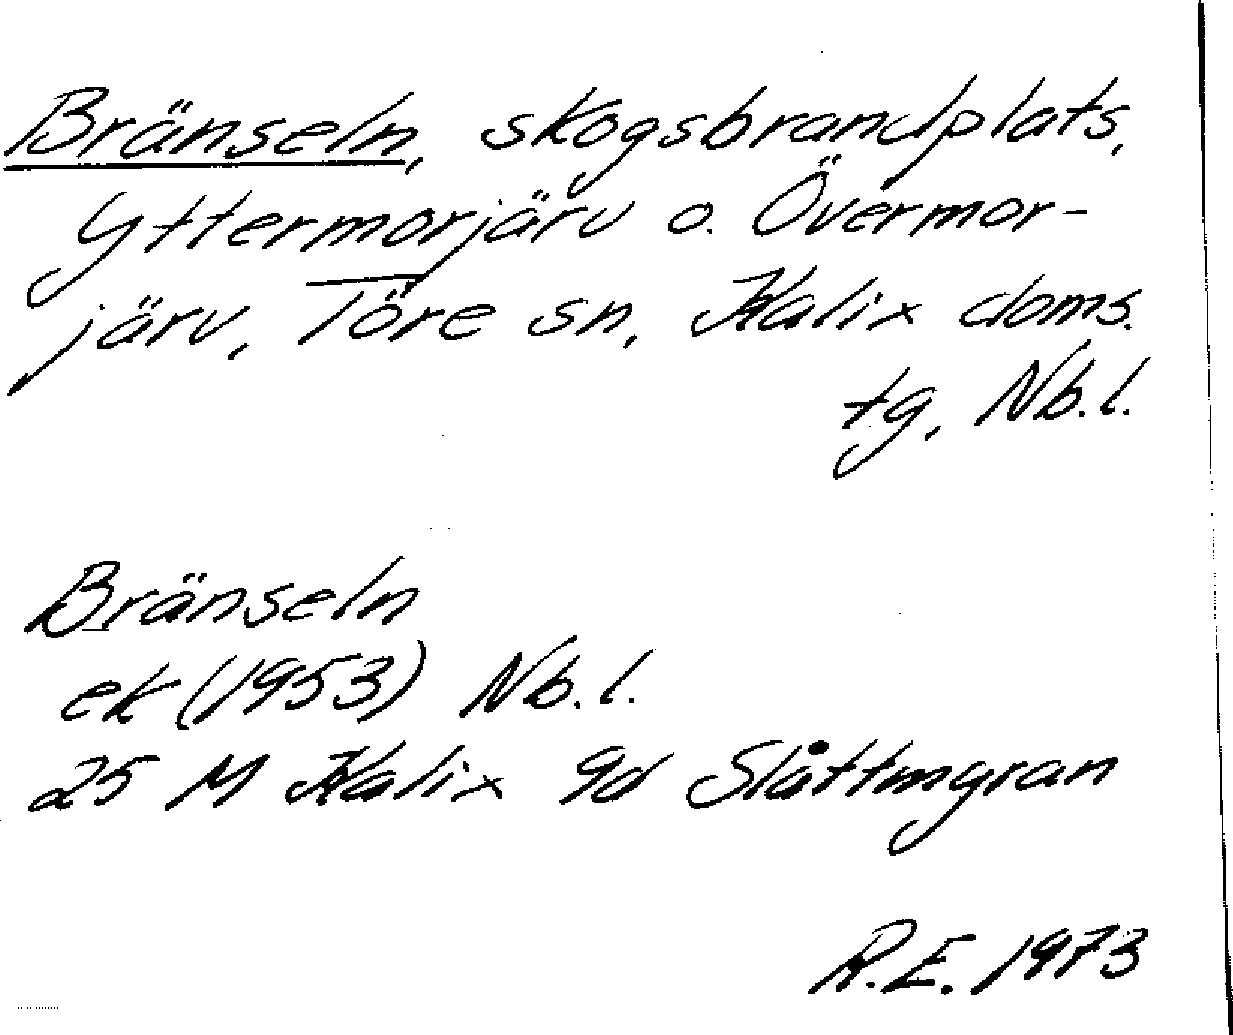 Bränseln, skogsbrandplats,
Yttermorjärv o. Övermor-
järv, Töre sn, Kalix doms.
tg, Nb.l.
Bränseln
ek (1953) Nb.l.
25 M Kalix 9d Slåttmyran
R.E. 1973